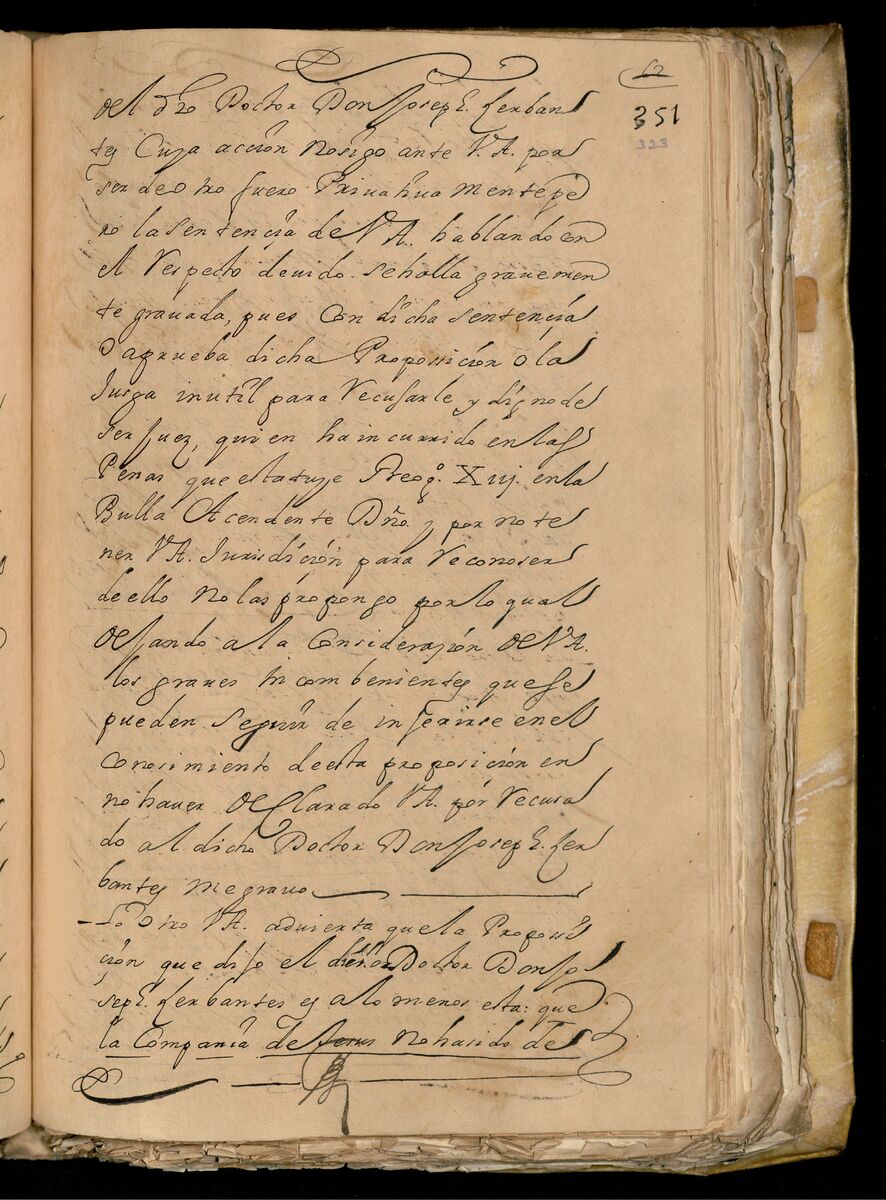 62
351
323
del dho Doctor Don Joseph. Zerban
tes Cuya acción no sigo ante V.A. por
ser de otro fuero Privatiua mente pe
ro la sentencia de V.A. hablando con
el Respecto deuido se halla grauemen
te grauada, pues Con dicha sentencia
o aprueba dicha Proposición o la
Jusga inutil para Recusarle y digno de
ser Juez, quien ha incurrido en las
Penas que estatuye Greg.º Xiij. en la
Bulla Acendente Dño. y por no te
ner V.A. Jurisdición para Reconoser
de ello no las propongo por lo qual
dejando a la Considerazión de V.A.
los graues Incombenientes que se
pueden seguir de inserirse en el
Conosimiento de esta proposición en
no hauer declarado V.A. por Recusa
do al dicho Doctor Don Joseph. Zer
bantes me grauo
Lo Otro V.A. aduierta que la Proposi
ción que dijo el dicho Doctor Don Jo
seph. Zerbantes es a lo menos esta: que
la Compania de Jesus No ha sido de